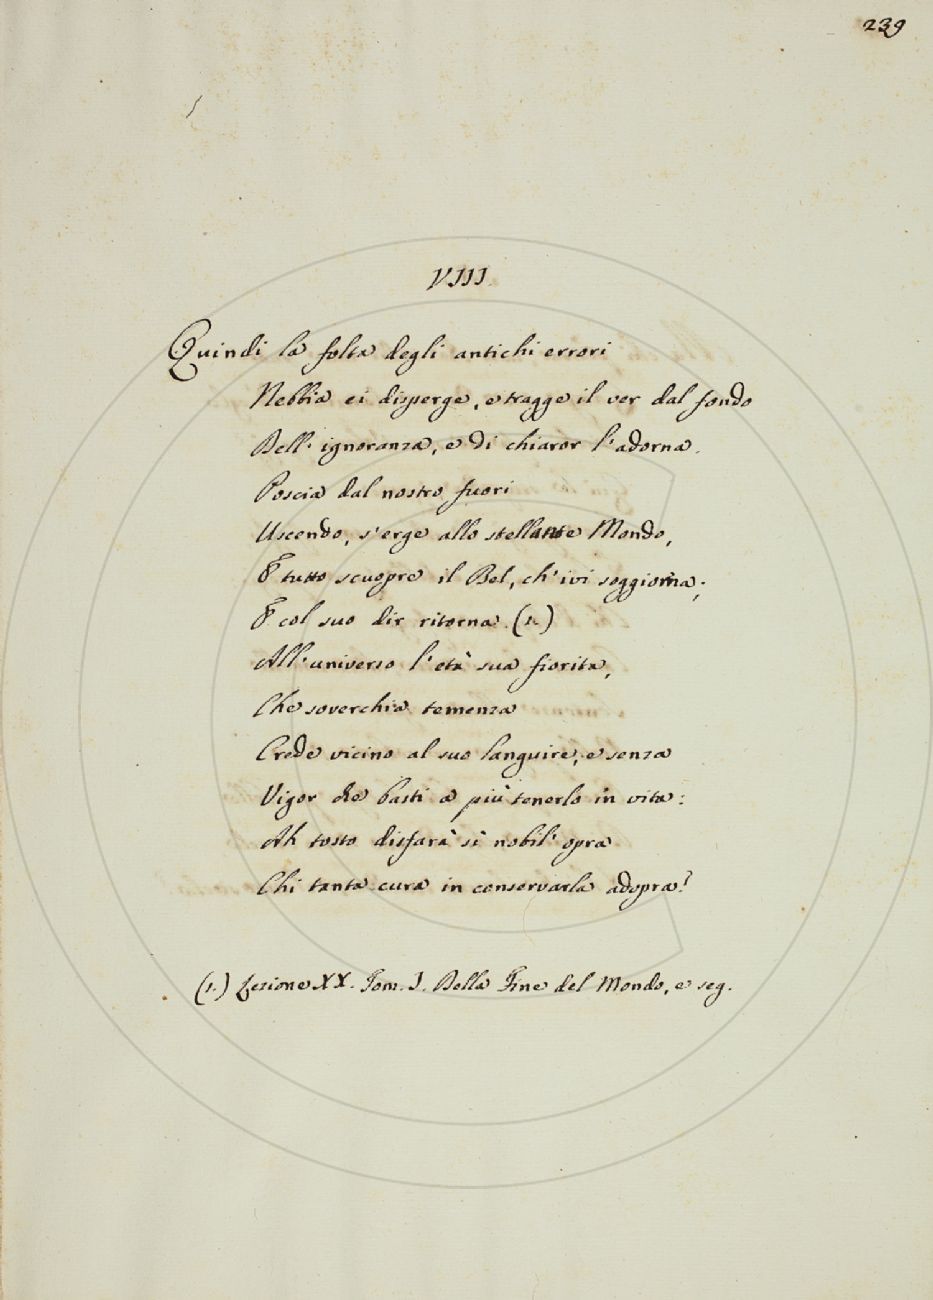 239
VIII.
Quindi la folta degli antichi errori
Nebbia ei disperge, e tragge il ver dal fondo
Dell' ignoranza, e di chiaror l'adorna.
Poscia dal nostro fuori
Uscendo, s'erge allo stellante Mondo,
E tutto scuopre il Bel, ch'ivi soggiorna;
E col suo dir ritorna (1.)
All'universo l'età sua fiorita,
Che soverchia temenza
Crede vicino al suo languire, e senza
Vigor che basti a più tenerlo in vita:
Ah tosto disfarà sì nobil' opra
Chi tanta cura in conservarla adopra?
(1.) Lezione XX. Tom. I. Della Fine del Mondo, e seg.